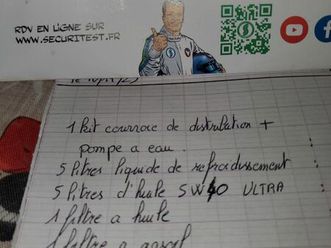 RDV EN LIGNE SUR
WWW.SECURITEST.FR
1 Kit courroie de distribution +
pompe a eau.
5 litres liquide de refroidissement :
5 litres d'huile 5W40 ULTRA :
1 filtre a huile
1 filtre a